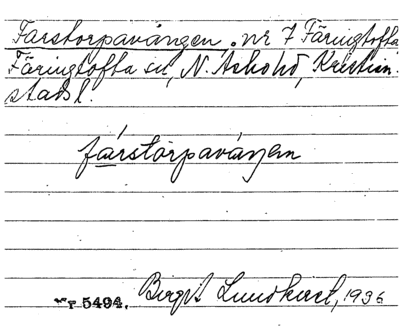 Farstorpavången, nr 7 Färingtofta
Färingtofta sn, N. Åsbo hd, Kristian-
stads l.
fárstòrpaváŋen
Nr 5494. Birgit Lundkvist, 1936